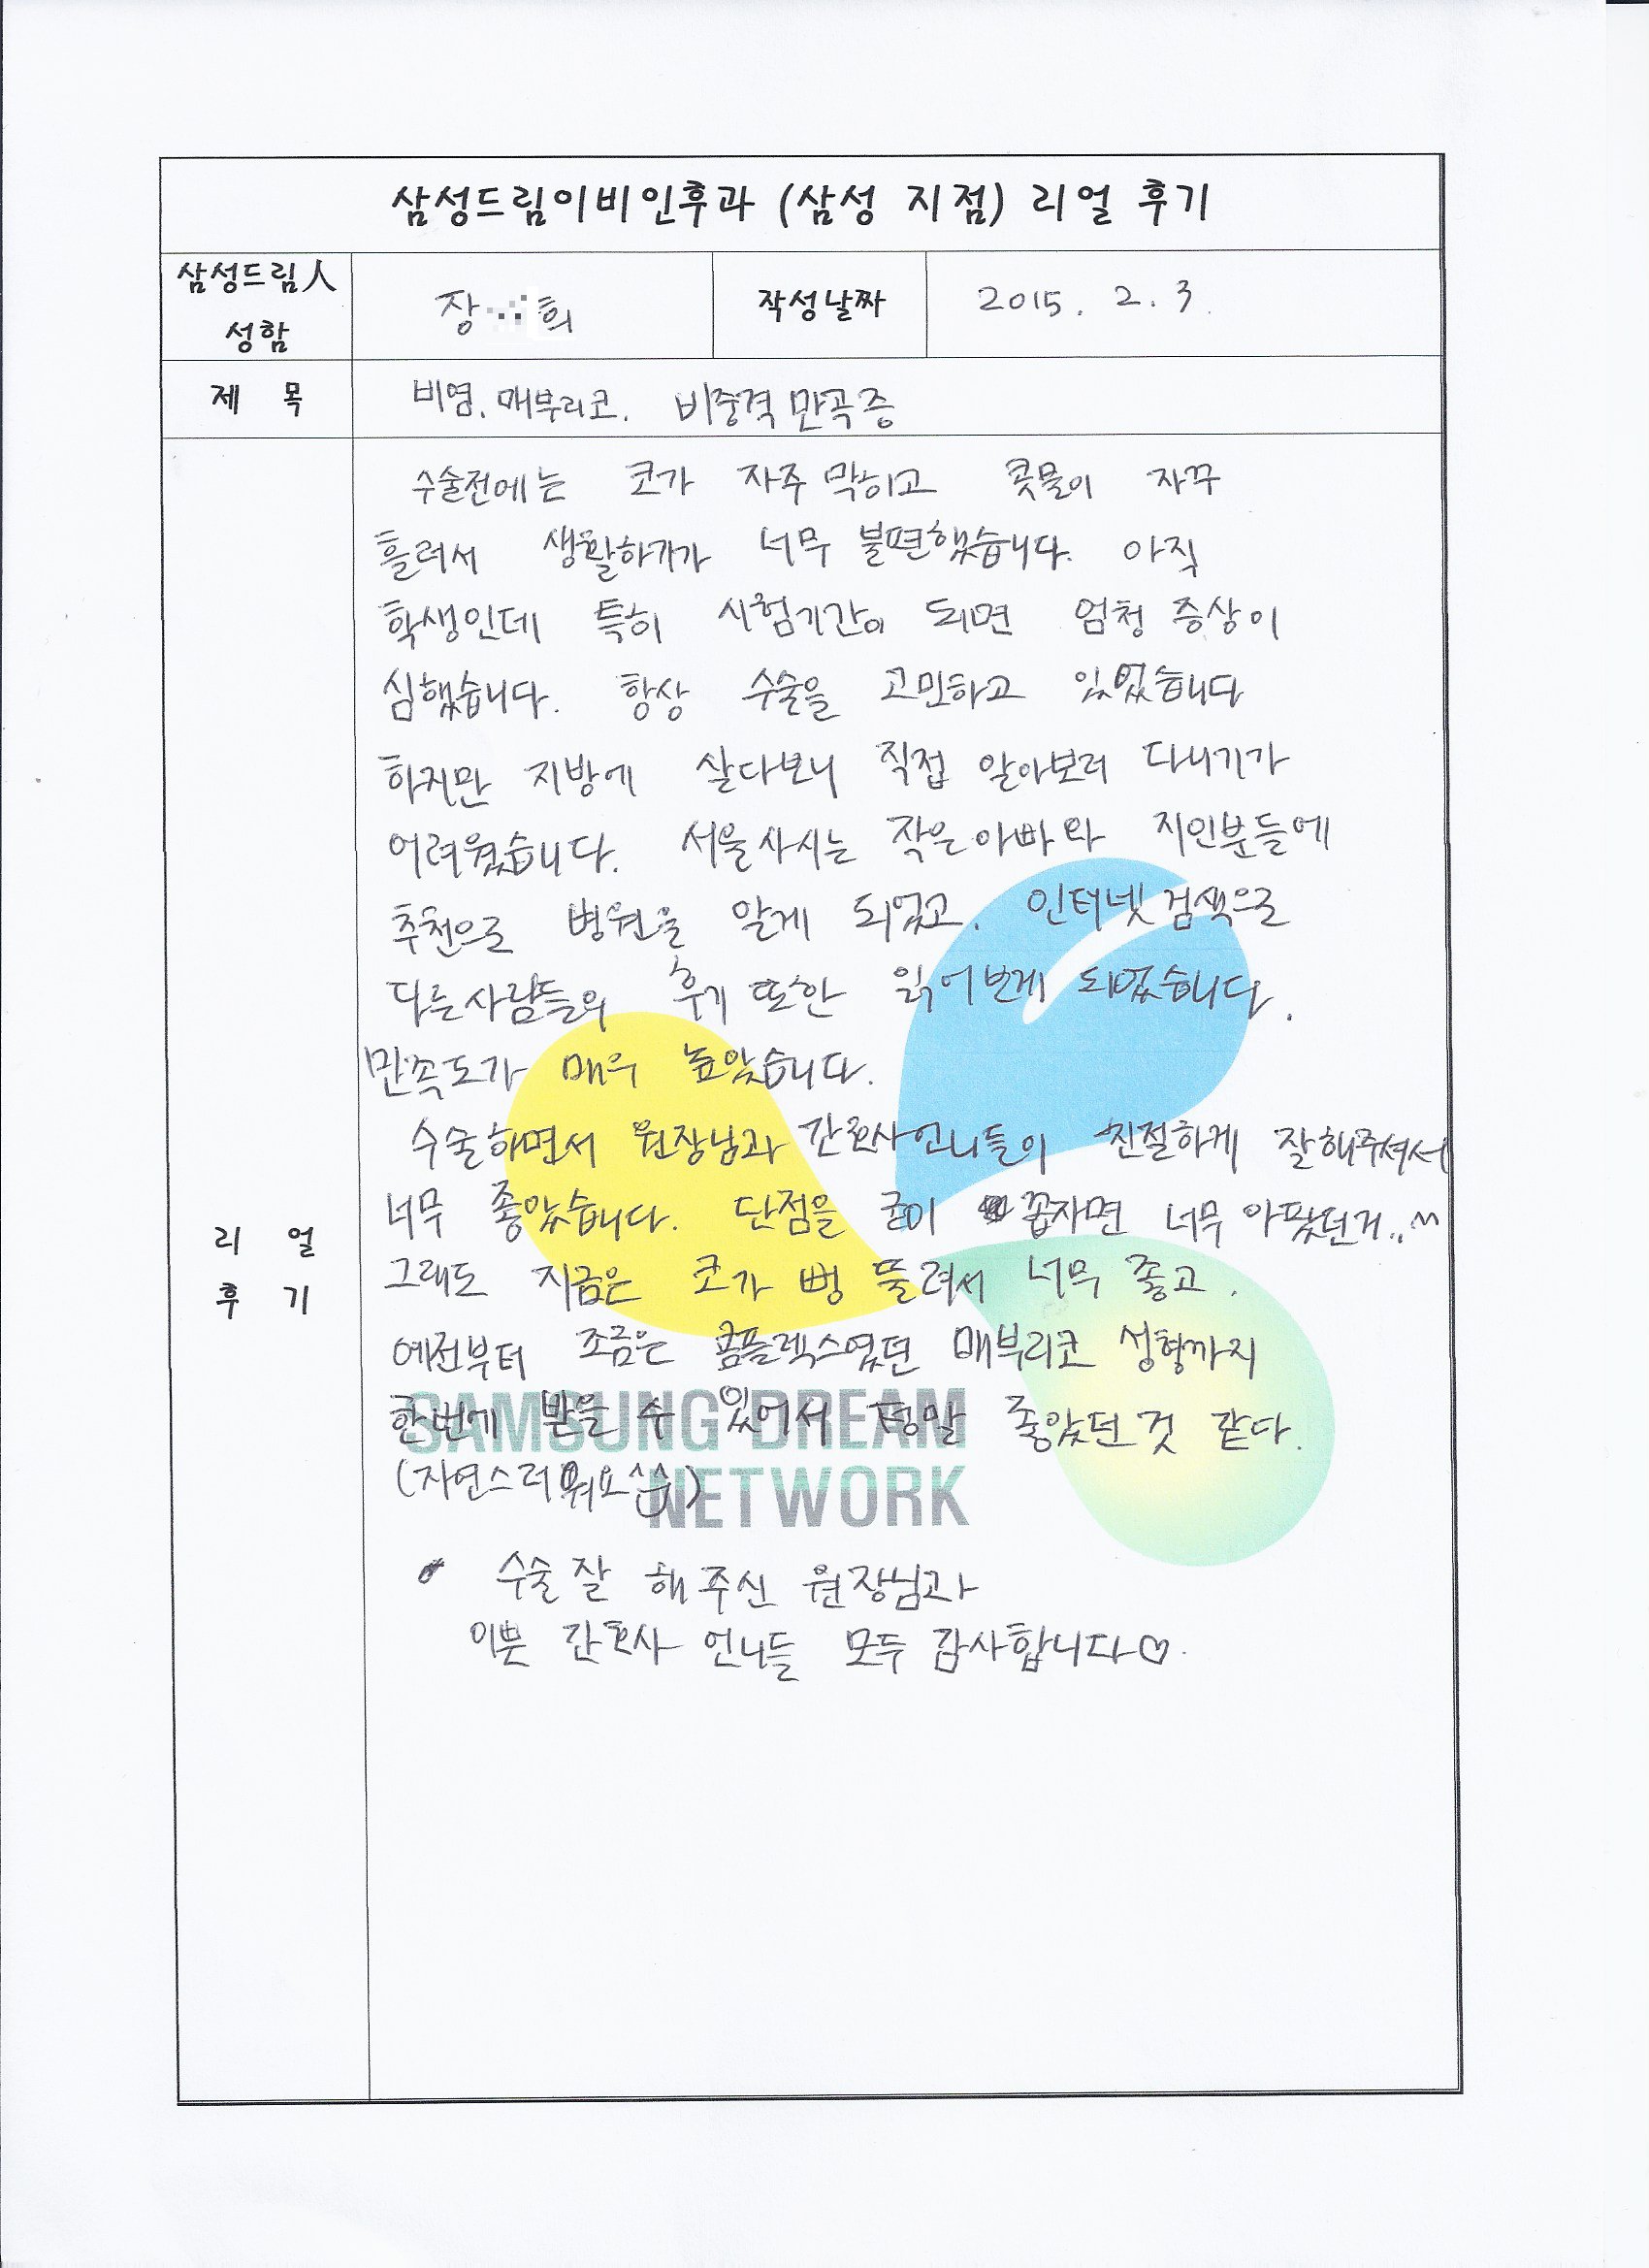 삼성드림이비인후과 (삼성 지점) 리얼 후기
삼성드림人 성함
장 희
작성날짜
2015. 2. 3.
제 목
비염. 매부리코. 비중격만곡증
리 얼 후 기
수술전에는 코가 자주 막히고 콧물이 자꾸
흘러서 생활하기가 너무 불편했습니다. 아직
학생인데 특히 시험기간이 되면 엄청 증상이
심했습니다. 항상 수술을 고민하고 있었습니다
하지만 지방에 살다보니 직접 알아보러 다니기가
어려웠습니다. 서울사시는 작은아빠와 지인분들에
추천으로 병원을 알게 되었고. 인터넷검색으로
다른사람들의 후기 또한 읽어보게 되었습니다.
만족도가 매우 높았습니다.
수술하면서 원장님과 간호사언니들이 친절하게 잘해주셔서
너무 좋았습니다. 단점을 굳이 꼽자면 너무 아팠던거..^^
그래도 지금은 코가 뻥 뚫려서 너무 좋고.
예전부터 조금은 콤플렉스였던 매부리코 성형까지
한번에 받을 수 있어서 정말 좋았던 것 같다.
(자연스러워요^^)
수술 잘 해주신 원장님과
이쁜 간호사 언니들 모두 감사합니다♡.
SAMSUNG DREAM
NETWORK